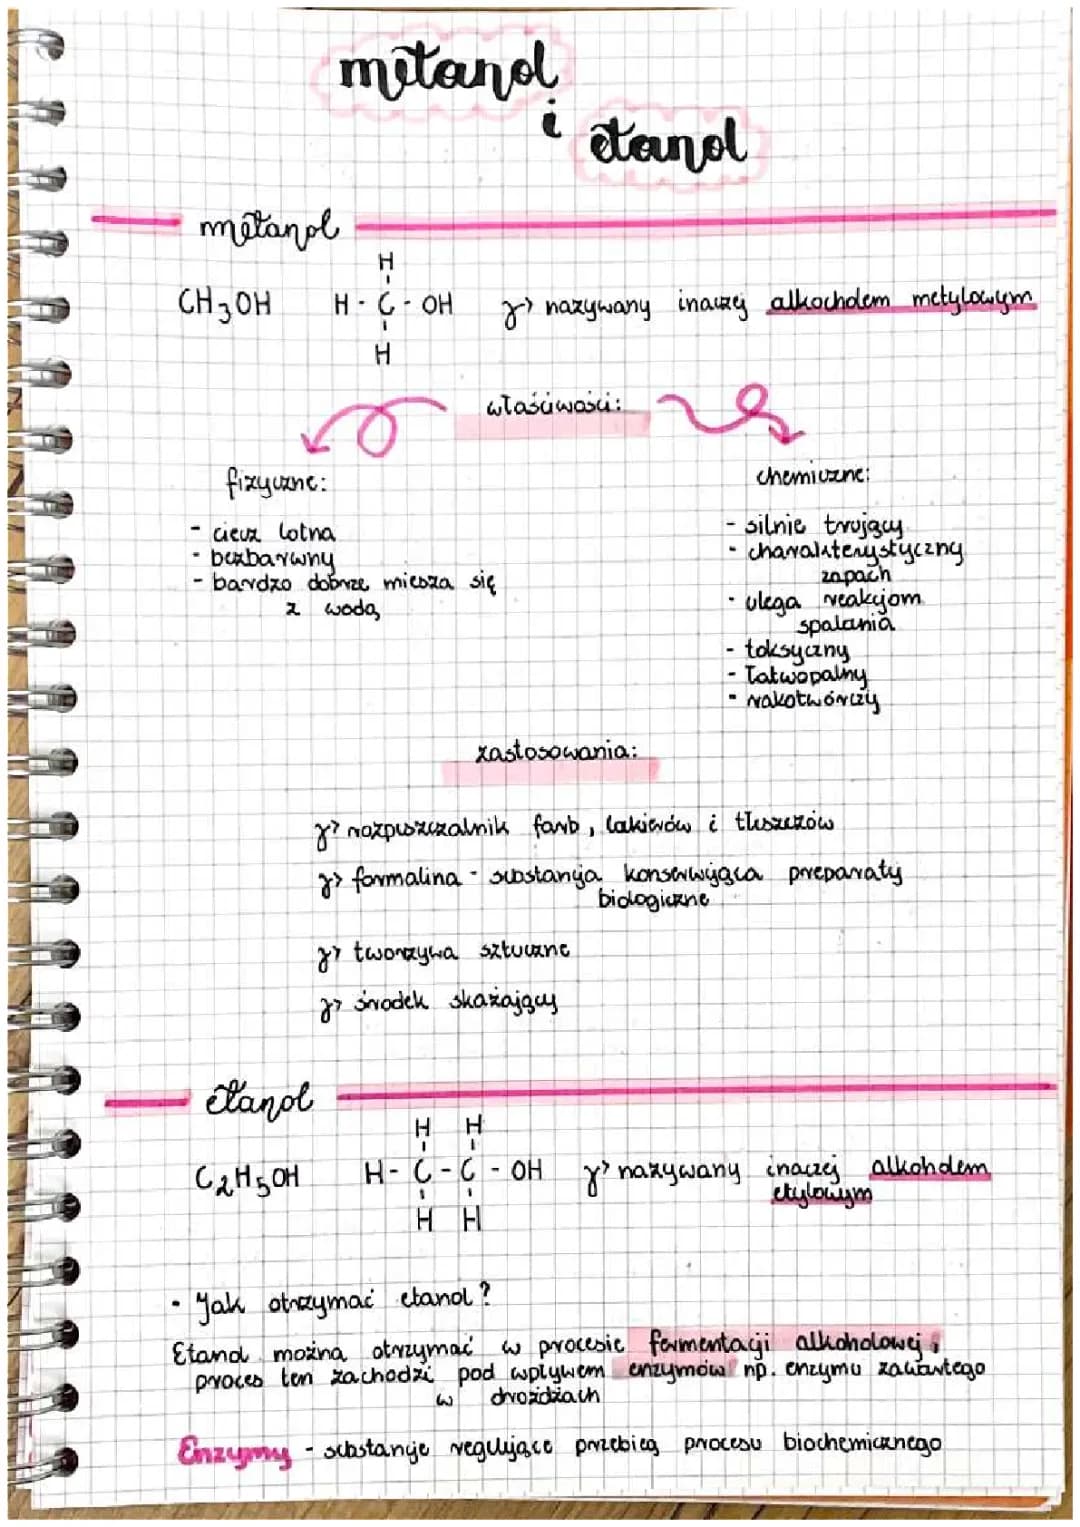 metanol
i
etanol
metanol
H
CH3OH H - C - OH → nazywany inaczej alkocholem metylowym
H
właściwości:
fizyczne:
- ciecz lotna
- bezbarwny
- bardzo dobrze miesza się
z wodą
chemiczne:
- silnie trujący
- charakterystyczny
zapach
- ulega reakcjom
spalania
- toksyczny
- łatwopalny
- rakotwórczy
zastosowania:
→ rozpuszczalnik farb, lakierów i tłuszczów
→ formalina - substancja konserwująca preparaty
biologiczne
→ tworzywa sztuczne
→ środek skażający
etanol
H H
C2H5OH H - C - C - OH → nazywany inaczej alkoholem
etylowym
H H
• Jak otrzymać etanol?
Etanol można otrzymać w procesie fermentacji alkoholowej,
proces ten zachodzi pod wpływem enzymów np. enzymu zawartego
w drożdżach
Enzymy - substancje regulujące przebieg procesu biochemicznego